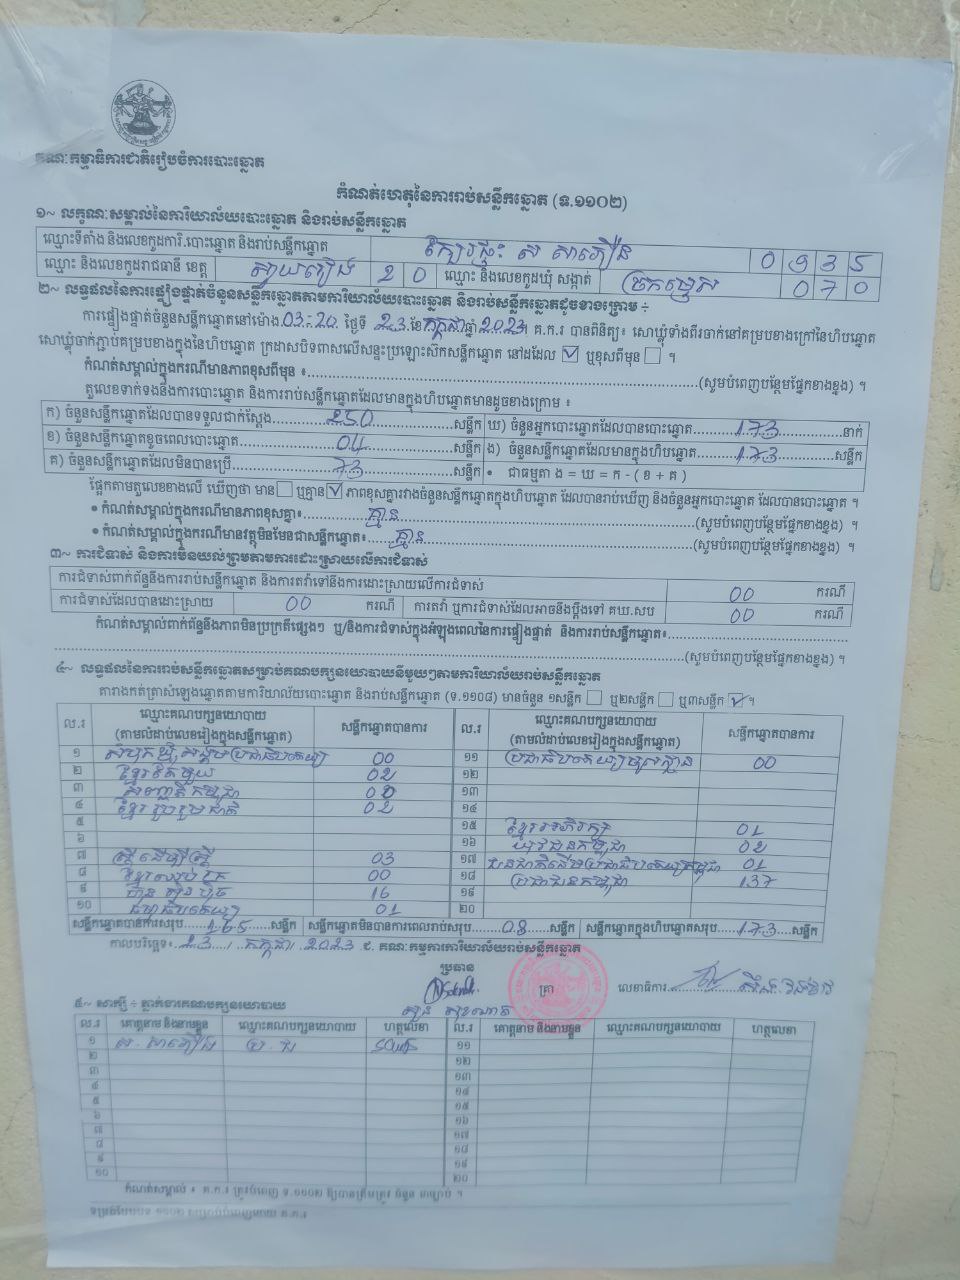 គណៈកម្មាធិការជាតិរៀបចំការបោះឆ្នោត
កំណត់ហេតុនៃការរាប់សន្លឹកឆ្នោត (ទ.១១០២)
១~ លក្ខណៈសម្គាល់នៃការិយាល័យបោះឆ្នោត និងរាប់សន្លឹកឆ្នោត
ឈ្មោះទីតាំង និងលេខកូដការិ.បោះឆ្នោត និងរាប់សន្លឹកឆ្នោត ក្បែរផ្ទះ ស សាភឿន 0935
ឈ្មោះ និងលេខកូដរាជធានី ខេត្ត ស្វាយរៀង 20 ឈ្មោះ និងលេខកូដឃុំ សង្កាត់ ច្រកម្ទេស 070
២~ លទ្ធផលនៃការផ្ទៀងផ្ទាត់ចំនួនសន្លឹកឆ្នោតតាមការិយាល័យបោះឆ្នោត និងរាប់សន្លឹកឆ្នោតដូចខាងក្រោម ÷
ការផ្ទៀងផ្ទាត់ចំនួនសន្លឹកឆ្នោតនៅម៉ោង 03-20 ថ្ងៃទី 23 ខែ កក្កដា ឆ្នាំ 2023 ។ គ.ក.រ បានពិនិត្យ៖ សោឃ្លុំទាំងពីរចាក់នៅគម្របខាងក្រៅនៃហិបឆ្នោត
សោឃ្លុំចាក់ភ្ជាប់គម្របខាងក្នុងនៃហិបឆ្នោត ក្រដាសបិទពាសលើសន្ទះប្រឡោះស៊កសន្លឹកឆ្នោត នៅដដែល ☑ ឬខុសពីមុន ☐ ។
កំណត់សម្គាល់ក្នុងករណីមានភាពខុសពីមុន ៖ (សូមបំពេញបន្ថែមផ្នែកខាងខ្នង) ។
តួលេខទាក់ទងនឹងការបោះឆ្នោត និងការរាប់សន្លឹកឆ្នោតដែលមានក្នុងហិបឆ្នោតមានដូចខាងក្រោម ៖
ក) ចំនួនសន្លឹកឆ្នោតដែលបានទទួលជាក់ស្តែង 250 សន្លឹក ឃ) ចំនួនអ្នកបោះឆ្នោតដែលបានបោះឆ្នោត 173 នាក់
ខ) ចំនួនសន្លឹកឆ្នោតខូចពេលបោះឆ្នោត 04 សន្លឹក ង) ចំនួនសន្លឹកឆ្នោតដែលមានក្នុងហិបឆ្នោត 173 សន្លឹក
គ) ចំនួនសន្លឹកឆ្នោតដែលមិនបានប្រើ 73 សន្លឹក • ជាធម្មតា ង = ឃ = ក - ( ខ + គ )
ផ្អែកតាមតួលេខខាងលើ ឃើញថា មាន ☐ ឬគ្មាន ☑ ភាពខុសគ្នារវាងចំនួនសន្លឹកឆ្នោតក្នុងហិបឆ្នោត ដែលបានរាប់ឃើញ និងចំនួនអ្នកបោះឆ្នោត ដែលបានបោះឆ្នោត ។
• កំណត់សម្គាល់ក្នុងករណីមានភាពខុសគ្នា៖ គ្មាន (សូមបំពេញបន្ថែមផ្នែកខាងខ្នង) ។
• កំណត់សម្គាល់ក្នុងករណីមានវត្ថុមិនមែនជាសន្លឹកឆ្នោត៖ គ្មាន (សូមបំពេញបន្ថែមផ្នែកខាងខ្នង) ។
៣~ ការជំទាស់ និងការមិនយល់ព្រមតាមការដោះស្រាយលើការជំទាស់
ការជំទាស់ពាក់ព័ន្ធនឹងការរាប់សន្លឹកឆ្នោត និងការតវ៉ាទៅនឹងការដោះស្រាយលើការជំទាស់ 00 ករណី
ការជំទាស់ដែលបានដោះស្រាយ 00 ករណី ការតវ៉ា ឬការជំទាស់ដែលអាចនឹងប្តឹងទៅ គឃ.សប 00 ករណី
កំណត់សម្គាល់ពាក់ព័ន្ធនឹងភាពមិនប្រក្រតីផ្សេងៗ ឬ/និងការជំទាស់ក្នុងអំឡុងពេលនៃការផ្ទៀងផ្ទាត់ និងការរាប់សន្លឹកឆ្នោត៖
(សូមបំពេញបន្ថែមផ្នែកខាងខ្នង) ។
៤~ លទ្ធផលនៃការរាប់សន្លឹកឆ្នោតសម្រាប់គណបក្សនយោបាយនីមួយៗតាមការិយាល័យរាប់សន្លឹកឆ្នោត
តារាងកត់ត្រាសំឡេងឆ្នោតតាមការិយាល័យបោះឆ្នោត និងរាប់សន្លឹកឆ្នោត (ទ.១១០៨) មានចំនួន ១សន្លឹក ☐ ឬ២សន្លឹក ☐ ឬ៣សន្លឹក ☑ ។
ល.រ ឈ្មោះគណបក្សនយោបាយ (តាមលំដាប់លេខរៀងក្នុងសន្លឹកឆ្នោត) សន្លឹកឆ្នោតបានការ ល.រ ឈ្មោះគណបក្សនយោបាយ (តាមលំដាប់លេខរៀងក្នុងសន្លឹកឆ្នោត) សន្លឹកឆ្នោតបានការ
១ សំបុកឃ្មុំសង្គមប្រជាធិបតេយ្យ 00 ១១ ប្រជាធិបតេយ្យមូលដ្ឋាន 00
២ ខ្មែរតែមួយ 02 ១២
៣ សញ្ជាតិកម្ពុជា ១៣
៤ ខ្មែររួបរួមជាតិ 02 ១៤
៥ ១៥ ខ្មែរអភិរក្ស 01
៦ ១៦ យុវជនកម្ពុជា 02
៧ ស្ត្រីដើម្បីស្ត្រី 03 ១៧ ជនជាតិដើមប្រជាធិបតេយ្យកម្ពុជា 01
៨ 00 ១៨ ប្រជាជនកម្ពុជា 137
៩ ហ៊្វុនស៊ិនប៉ិច 16 ១៩
១០ ធម្មាធិបតេយ្យ 01 ២០
សន្លឹកឆ្នោតបានការសរុប 165 សន្លឹក សន្លឹកឆ្នោតមិនបានការពេលរាប់សរុប 08 សន្លឹក សន្លឹកឆ្នោតក្នុងហិបឆ្នោតសរុប 173 សន្លឹក
កាលបរិច្ឆេទ៖ 23 / កក្កដា / 2023 ជ. គណៈកម្មការការិយាល័យរាប់សន្លឹកឆ្នោត
ប្រធាន
ត្រា លេខាធិការ
៥~ សាក្សី ÷ ភ្នាក់ងារគណបក្សនយោបាយ
ល.រ គោត្តនាម និងនាមខ្លួន ឈ្មោះគណបក្សនយោបាយ ហត្ថលេខា ល.រ គោត្តនាម និងនាមខ្លួន ឈ្មោះគណបក្សនយោបាយ ហត្ថលេខា
១ ស. សាភឿន ប្រ.ជ ១១
២ ១២
៣ ១៣
៤ ១៤
៥ ១៥
៦ ១៦
៧ ១៧
៨ ១៨
៩ ១៩
១០ ២០
កំណត់សម្គាល់ ៖ គ.ក.រ ត្រូវបំពេញ ទ.១១០២ ឱ្យបានត្រឹមត្រូវ ចំនួន